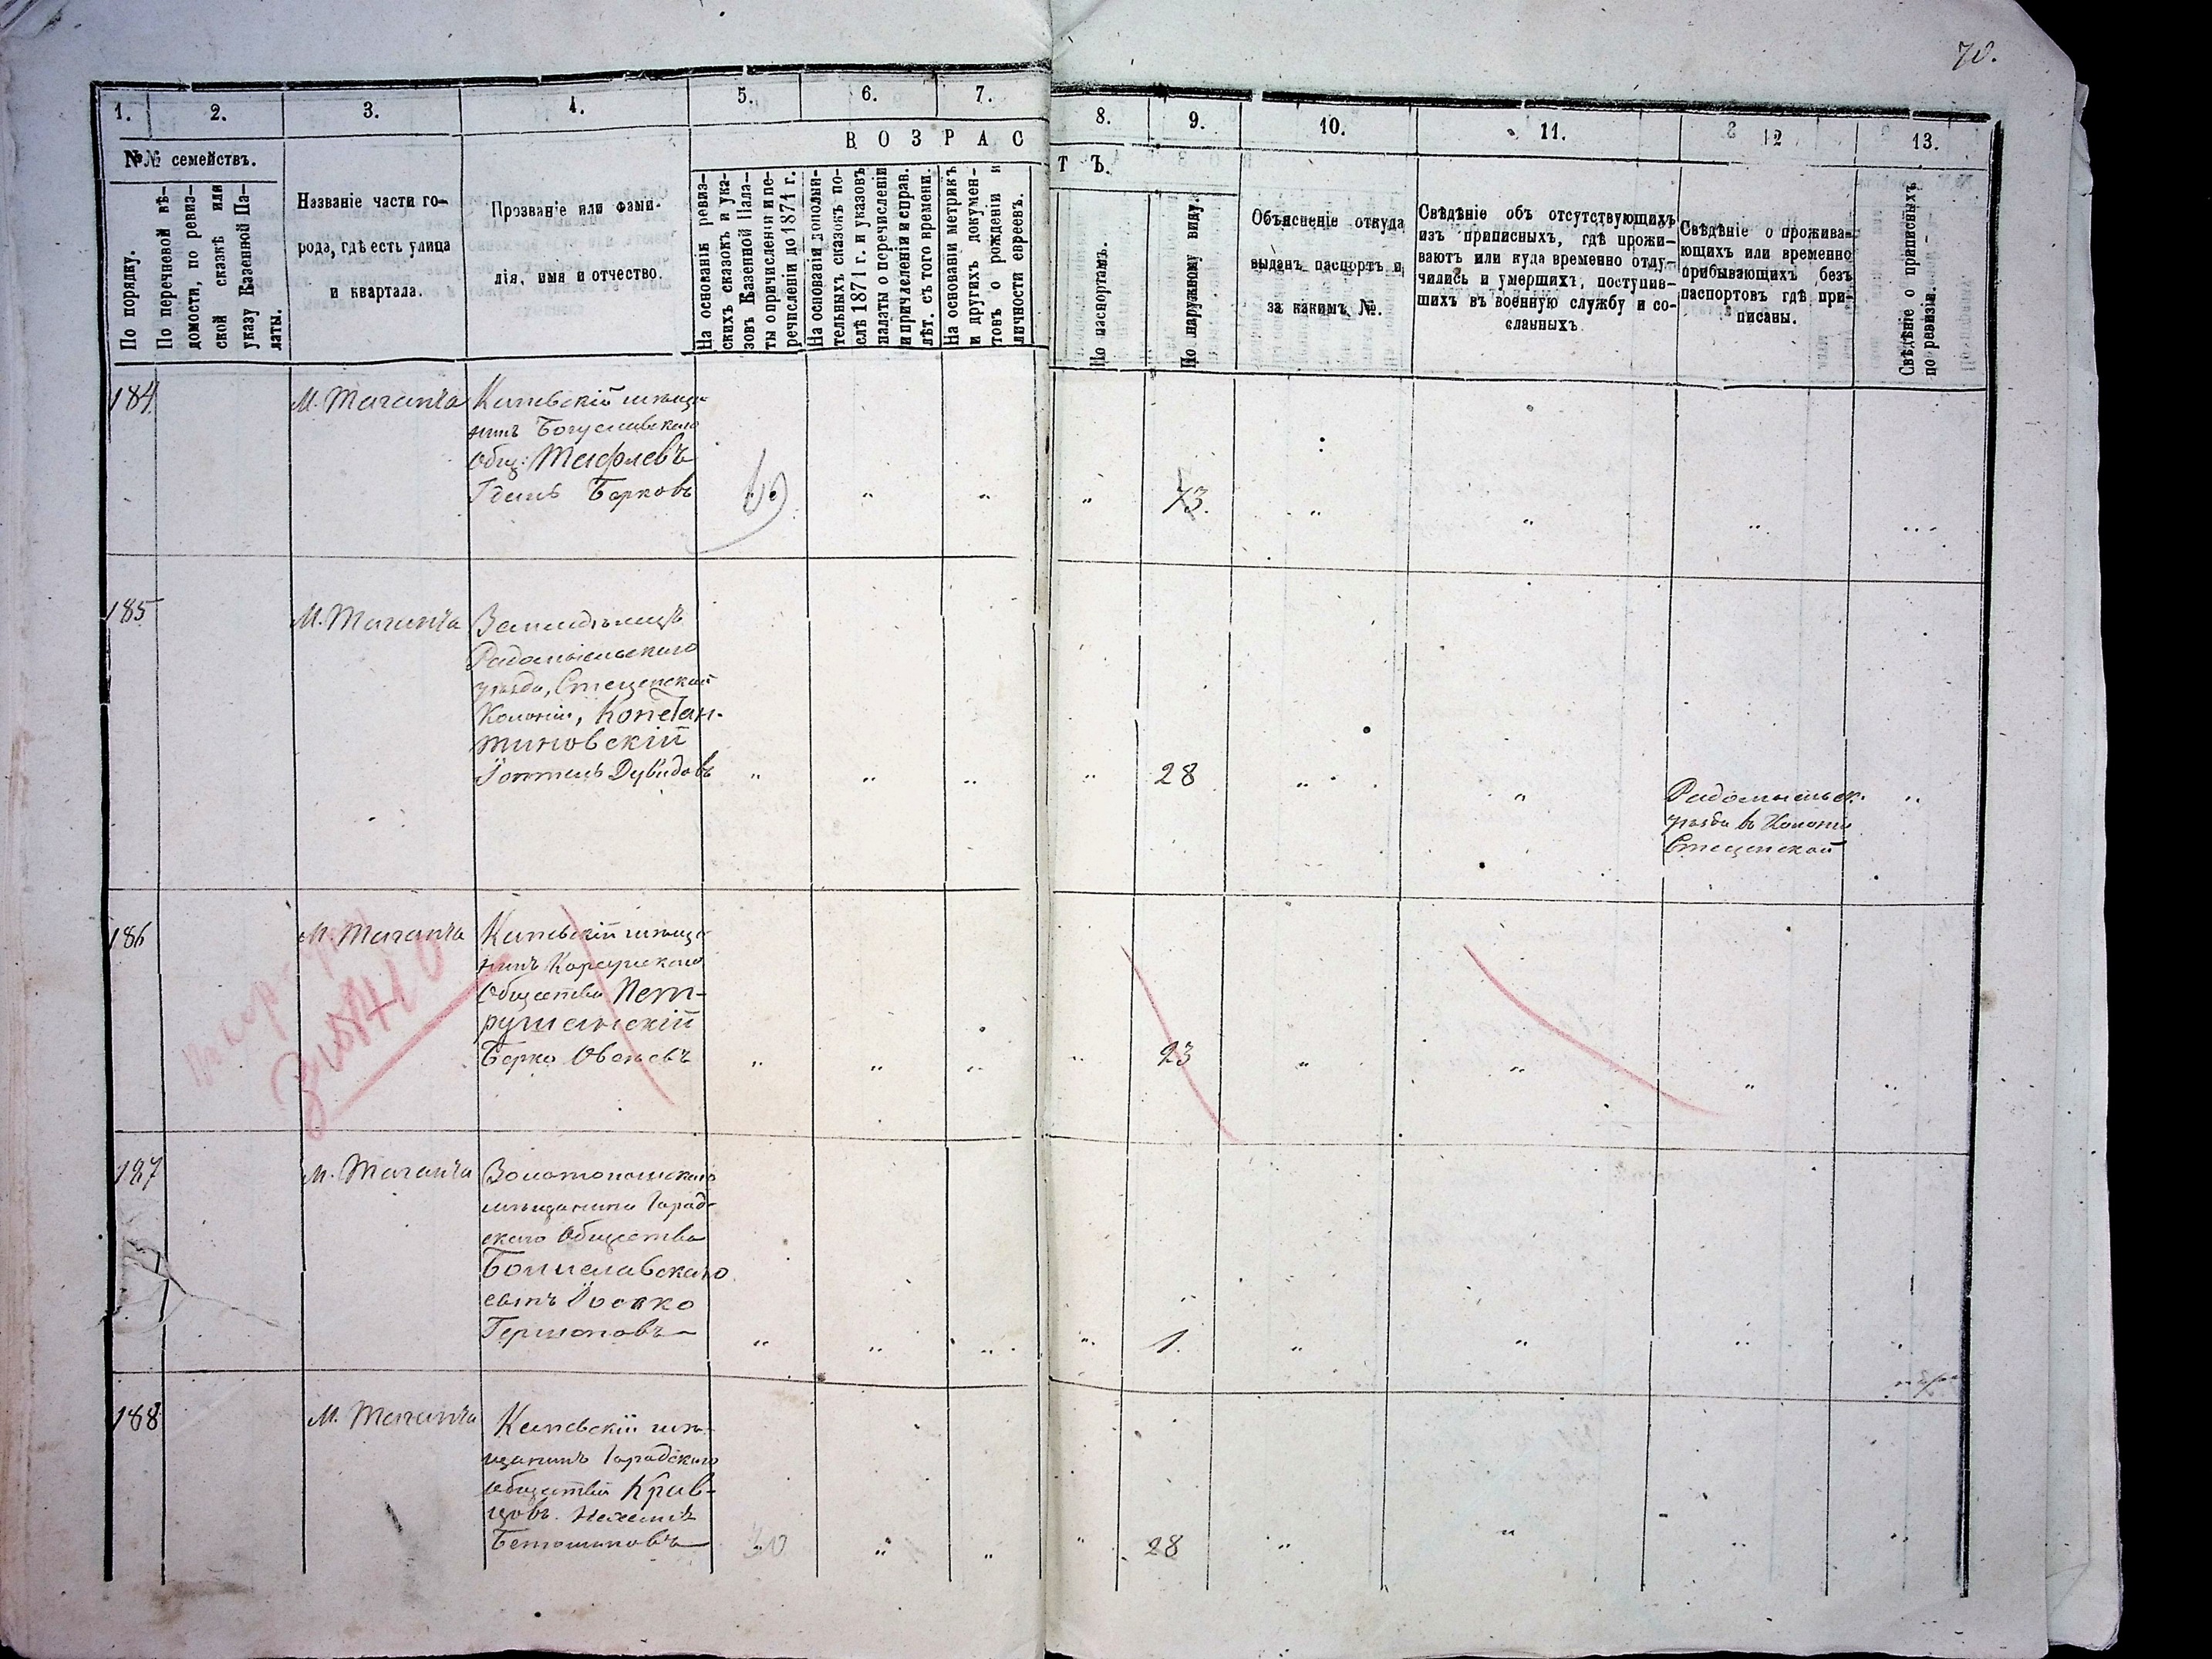 70.
1. 2. 3. 4. 5. 6. 7. 8. 9. 10. 11. 12 13.
№№ семействъ.
В О З Р А С Т Ъ.
По порядку.
По перечневой вѣ-
домости, по ревиз-
ской сказкѣ или
указу Казенной Па-
латы.
Названіе части го-
рода, гдѣ есть улица
и квартала.
Прозваніе или фами-
лія, имя и отчество.
На основаніи ревиз-
скихъ сказокъ и ука-
зовъ Казенной Пала-
ты о причисленіи и пе-
речисленіи до 1871 г.
На основаніи дополни-
тельныхъ сказокъ по-
слѣ 1871 г. и указовъ
палаты о перечисленіи
и причисленіи и справ.
лѣт. съ того времени.
На основаніи метрикъ
и другихъ докумен-
товъ о рожденіи и
личности евреевъ.
По паспортамъ.
По наружному виду.
Объясненіе откуда
выданъ паспортъ и
за какимъ №.
Свѣдѣніе объ отсутствующихъ
изъ приписныхъ, гдѣ прожи-
ваютъ или куда временно отлу-
чились и умершихъ, поступив-
шихъ въ военную службу и со-
сланныхъ
Свѣдѣніе о прожива-
ющихъ или временно
прибывающихъ безъ
паспортовъ гдѣ при-
писаны.
Свѣдѣніе о приписныхъ
по ревизіи.
184
М. Таганча
Каневскій мѣща-
нинъ Богуславскаго
Общ:
Берковъ
69
" " " 73. " " " "
185
М. Таганча
Земледѣлецъ
Радомысльскаго
уѣзда, Стецепской
Колоніи, Констан-
тиновскій
Дувидовъ
" " " " 28 " " "
Радомысльск.
уѣзда въ Колоніи
Стецепской
186
М. Таганча
Каневскій мѣща-
нинъ Корсунскаго
Общества Пет-
рушанскій
Берко Овсѣевъ
" " " " 23 " " " "
187
М. Таганча
Золотоношскаго
мѣщанина Город-
скаго Общества
Богуславскаго
сынъ Іосько
Гершоновъ
" " " " 1. " " "
188
М. Таганча
Каневскій мѣ-
щанинъ Городскаго
общества Крав-
цовъ
30 " " " 28 " " " "